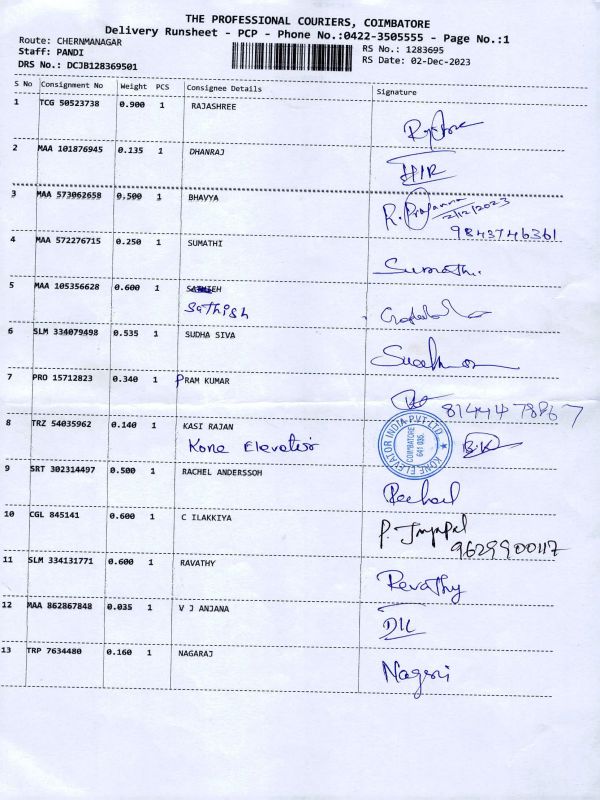 THE PROFESSIONAL COURIERS, COIMBATORE
Delivery Runsheet - PCP - Phone No.:0422-3505555 - Page No.:1
Route: CHERNMANAGAR
Staff: PANDI
RS No.: 1283695
DRS No.: DCJB128369501
RS Date: 02-Dec-2023
S No Consignment No Weight PCS Consignee Details Signature
1 TCG 50523738 0.900 1 RAJASHREE
2 MAA 101876945 0.135 1 DHANRAJ
3 MAA 573062658 0.500 1 BHAVYA
2/12/2023
9843746361
4 MAA 572276715 0.250 1 SUMATHI Sumathi.
5 MAA 105356628 0.600 1
Sathish
6 SLM 334079498 0.535 1 SUDHA SIVA
7 PRO 15712823 0.340 1 PRAM KUMAR
8 TRZ 54035962 0.140 1 KASI RAJAN
Kone Elevator
KONE ELEVATOR INDIA PVT. LTD.
COIMBATORE
641 036.
9 SRT 302314497 0.500 1 RACHEL ANDERSSOH
10 CGL 845141 0.600 1 C ILAKKIYA
9629900117
11 SLM 334131771 0.600 1 RAVATHY Revathy
12 MAA 862867848 0.035 1 V J ANJANA
13 TRP 7634480 0.160 1 NAGARAJ